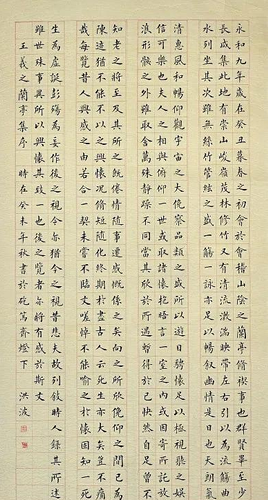 永和九年歲在癸丑暮春之初會於會稽山陰之蘭亭脩禊事也群賢畢至少
長咸集此地有崇山峻嶺茂林脩竹又有清流激湍映帶左右引以為流觴曲
水列坐其次雖無絲竹管絃之盛一觴一詠亦足以暢敘幽情是日也天朗氣
清惠風和暢仰觀宇宙之大俯察品類之盛所以遊目騁懷足以極視聽之娛
信可樂也夫人之相與俯仰一世或取諸懷抱悟言一室之內或因寄所託放
浪形骸之外雖取舍萬殊靜躁不同當其欣於所遇暫得於己快然自足曾不
知老之將至及其所之既倦情隨事遷感慨係之矣向之所欣俛仰之間已為
陳迹猶不能不以之興懷況脩短隨化終期於盡古人云死生亦大矣豈不痛
哉每覽昔人興感之由若合一契未嘗不臨文嗟悼不能喻之於懷固知一死
生為虛誕彭殤為妄作後之視今亦猶今之視昔悲夫故列敘時人錄其所述
雖世殊事異所以興懷其致一也後之覽者亦將有感於斯文
王羲之蘭亭集序 時在癸未年秋書於齋燈下 洪波